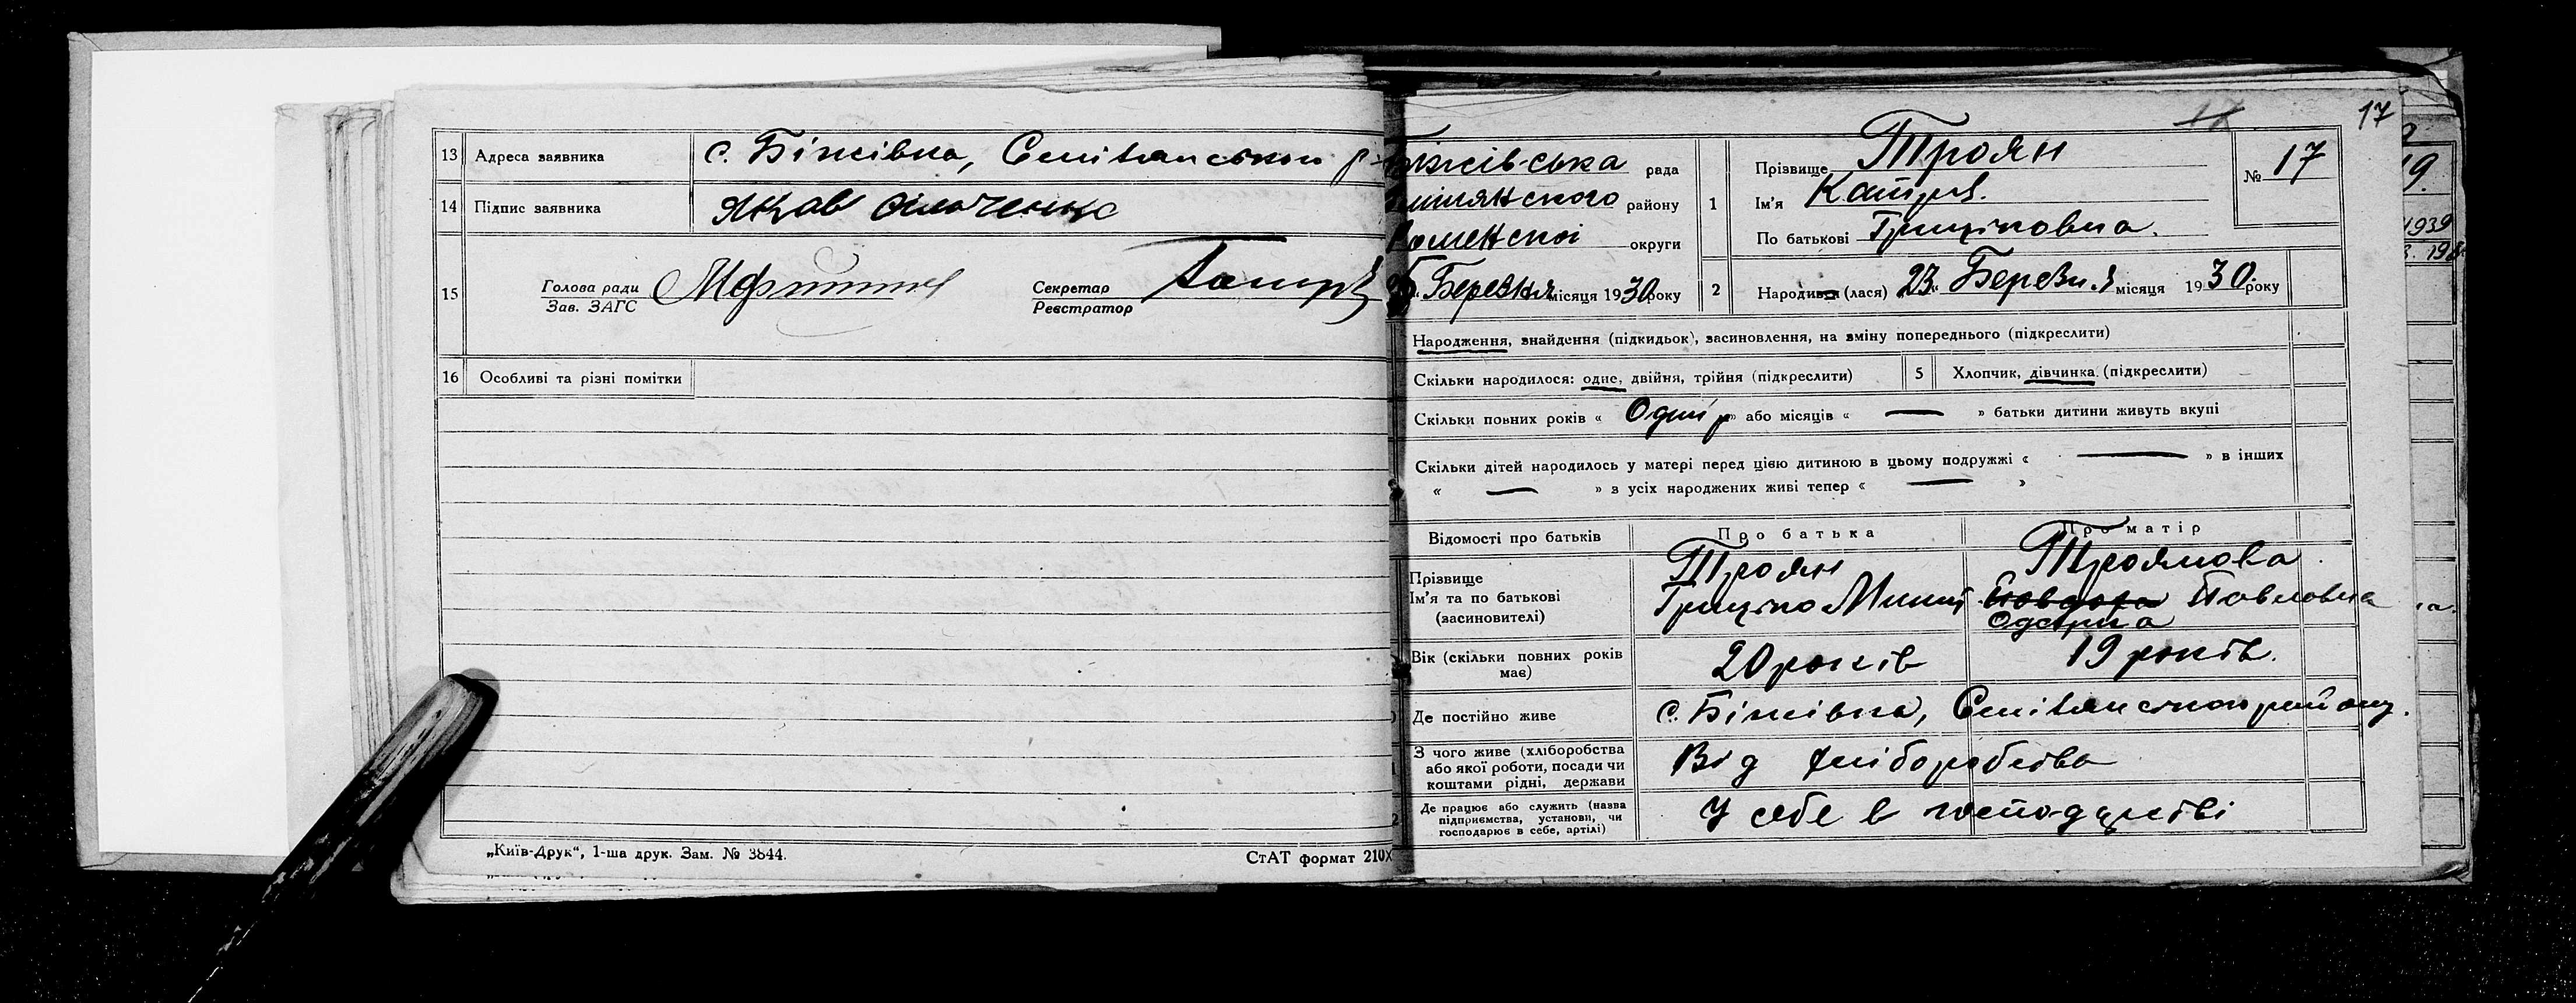 13 Адреса заявника с. Біжівка, Смілянського р
14 Підпис заявника Яков
15 Голова ради Секретар
Зав. ЗАГС Реєстратор
16 Особливі та різні помітки
„Київ-Друк“, 1-ша друк. Зам. № 3844. СтАТ формат 210х
17
Біжівська рада
району
Роменської округи
Березня місяця 1930 року
1 Прізвище Троян
Ім'я Катря
По батькові Гриціковна.
№ 17
2 Народився (лася) „23“ Березня місяця 1930 року
Народження, знайдення (підкидьок), засиновлення, на зміну попереднього (підкреслити)
Скільки народилося: одне, двійня, трійня (підкреслити) 5 Хлопчик, дівчинка (підкреслити)
Скільки повних років « Один р » або місяців « — » батьки дитини живуть вкупі
Скільки дітей народилось у матері перед цією дитиною в цьому подружжі « — » в інших
« — » з усіх народжених живі тепер « — »
Відомості про батьків Про батька Про матір
Прізвище Троян Троянова
Ім'я та по батькові Грицько Павловна
(засиновителі)
Вік (скільки повних років має) 20 років 19 років.
Де постійно живе с. Біжівка, Смілянського району.
З чого живе (хліборобства
або якої роботи, посади чи
коштами рідні, держави Від хліборобства
Де працює або служить (назва
підприємства, установи, чи
господарює в себе, артілі) У себе в господарстві